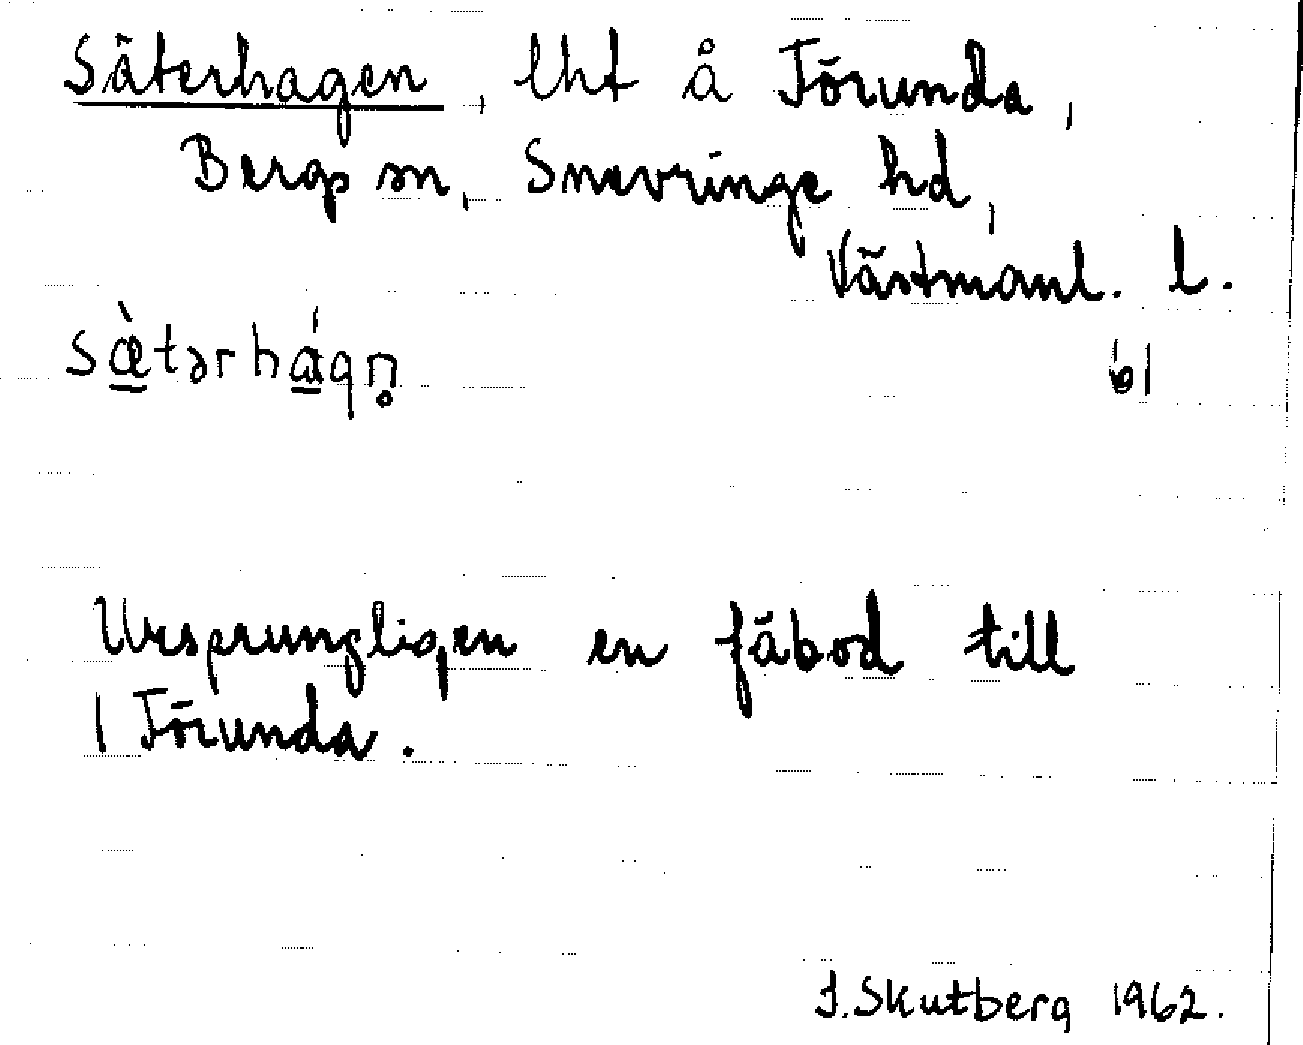 Säterhagen, lht å Törunda,
Bergs sn, Snevringe hd,
Västmanl. l.
sæ̀tərhágn̥ 61
Ursprungligen en fäbod till
1 Törunda.
I. Skutberg 1962.